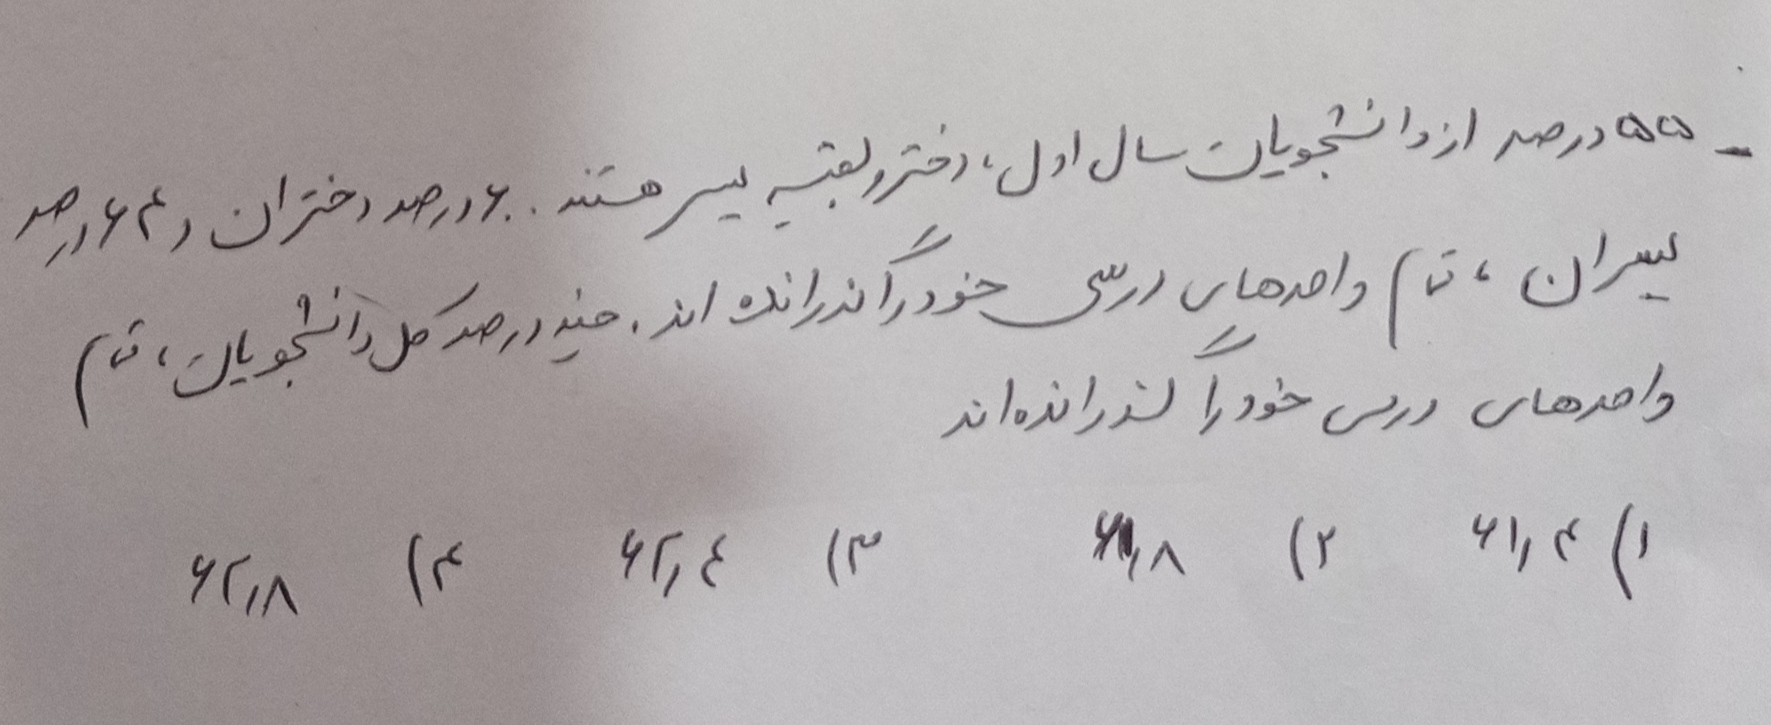 - ۵۵ درصد از دانشجویان سال اول، دختر و بقیه پسر هستند. ۶۰ درصد دختران و ۶۴ درصد
پسران، تمام واحدهای درسی خود را گذرانده اند. چند درصد کل دانشجویان، تمام
واحدهای درسی خود را گذرانده‌اند
۱) ۶۱٫۴ ۲) ۶۱٫۸ ۳) ۶۲٫۴ ۴) ۶۲٫۸